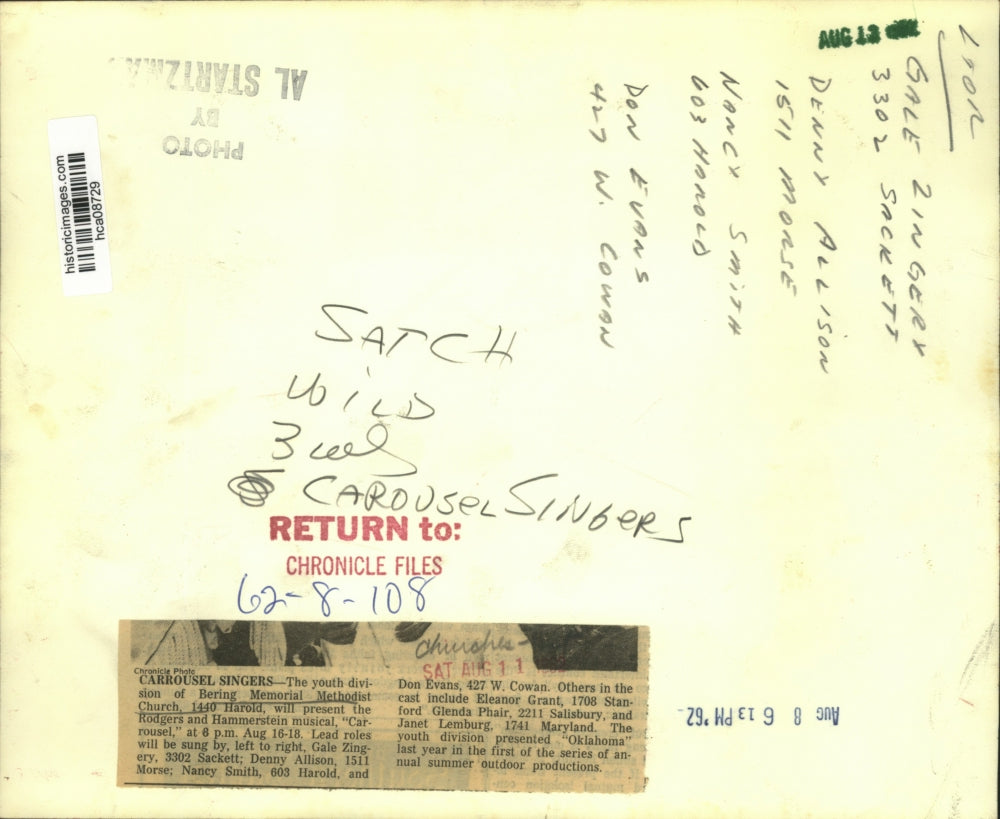 AUG 13
LTOR
GALE ZINGERY
3302 SACKETT
DENNY ALLISON
1511 MORSE
NANCY SMITH
603 HAROLD
DON EVANS
427 W. COWAN
PHOTO
BY
AL STARTZMAN
historicimages.com
hca08729
SATCH
WILD
3
CAROUSEL SINGERS
RETURN to:
CHRONICLE FILES
62-8-108
churches-
SAT AUG 11
Chronicle Photo
CARROUSEL SINGERS—The youth divi-
sion of Bering Memorial Methodist
Church, 1440 Harold, will present the
Rodgers and Hammerstein musical, "Car-
rousel," at 8 p.m. Aug 16-18. Lead roles
will be sung by, left to right, Gale Zing-
ery, 3302 Sackett; Denny Allison, 1511
Morse; Nancy Smith, 603 Harold, and
Don Evans, 427 W. Cowan. Others in the
cast include Eleanor Grant, 1708 Stan-
ford Glenda Phair, 2211 Salisbury, and
Janet Lemburg, 1741 Maryland. The
youth division presented "Oklahoma"
last year in the first of the series of an-
nual summer outdoor productions.
AUG 8 6 13 PM '62